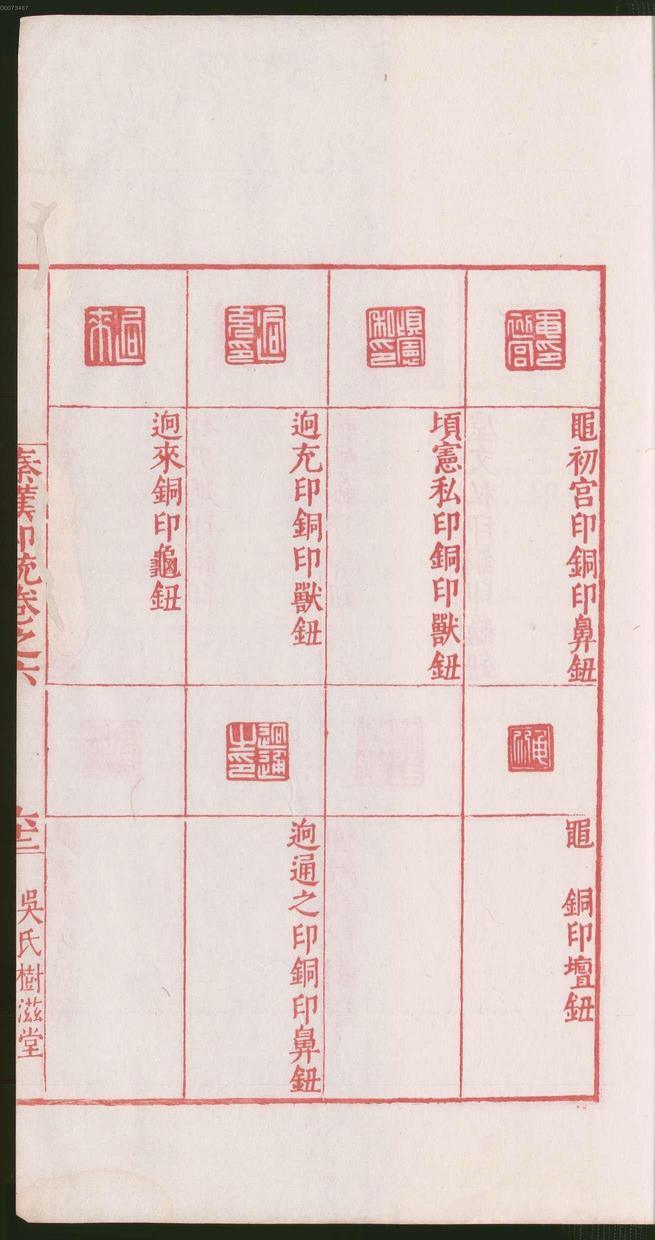 00073467
黽初宮印銅印鼻鈕
黽 銅印壇鈕
頃憲私印銅印獸鈕
迥充印銅印獸鈕
迥通之印銅印鼻鈕
迥來銅印龜鈕
秦漢印統卷之六
六十二
吳氏樹滋堂